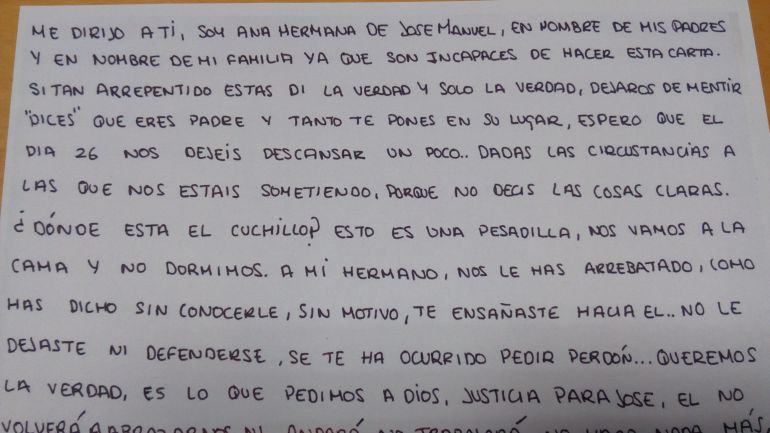 ME DIRIJO A TI, SOY ANA HERMANA DE JOSE MANUEL, EN NOMBRE DE MIS PADRES
Y EN NOMBRE DE MI FAMILIA YA QUE SON INCAPACES DE HACER ESTA CARTA.
SI TAN ARREPENTIDO ESTAS DI LA VERDAD Y SOLO LA VERDAD, DEJAROS DE MENTIR
"DICES" QUE ERES PADRE Y TANTO TE PONES EN SU LUGAR, ESPERO QUE EL
DIA 26 NOS DEJEIS DESCANSAR UN POCO.. DADAS LAS CIRCUSTANCIAS A
LAS QUE NOS ESTAIS SOMETIENDO, PORQUE NO DECIS LAS COSAS CLARAS.
¿DÓNDE ESTA EL CUCHILLO? ESTO ES UNA PESADILLA, NOS VAMOS A LA
CAMA Y NO DORMIMOS. A MI HERMANO, NOS LE HAS ARREBATADO, COMO
HAS DICHO SIN CONOCERLE, SIN MOTIVO, TE ENSAÑASTE HACIA EL.. NO LE
DEJASTE NI DEFENDERSE, SE TE HA OCURRIDO PEDIR PERDÓN... QUEREMOS
LA VERDAD, ES LO QUE PEDIMOS A DIOS, JUSTICIA PARA JOSE, EL NO
VOLVERÁ A NADA MÁS